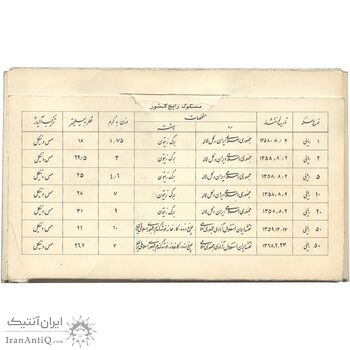 مسکوک رایج کشور
نوع سکه تاریخ انتشار مشخصات وزن به گرم قطر به میلیمتر ترکیب آلیاژ
رو پشت
۱ ریالی ۱۳۵۸/۸/۲ جمهوری اسلامی ایران، گل لاله برگ زیتون ۱/۷۵ ۱۸ مس و نیکل
۲ ریالی ۱۳۵۸/۸/۲ جمهوری اسلامی ایران، گل لاله برگ زیتون ۳ ۲۲/۵ مس و نیکل
۵ ریالی ۱۳۵۸/۸/۲ جمهوری اسلامی ایران، گل لاله برگ زیتون ۴/۶ ۲۵ مس و نیکل
۱۰ ریالی ۱۳۵۸/۸/۲ جمهوری اسلامی ایران، گل لاله برگ زیتون ۷ ۲۸ مس و نیکل
۲۰ ریالی ۱۳۵۸/۸/۲ جمهوری اسلامی ایران، گل لاله برگ زیتون ۹ ۳۱ مس و نیکل
۵۰ ریالی ۱۳۵۹/۱۲/۱۷ نقشه ایران، استقلال آزادی جمهوری اسلامی ۱۰ ۲۶ مس و نیکل
۵۰ ریالی ۱۳۶۸/۲/۲۳ نقشه ایران، استقلال آزادی جمهوری اسلامی ۷ ۲۶/۲ مس و نیکل
ایران آنتیک
IranAntiQ.COM